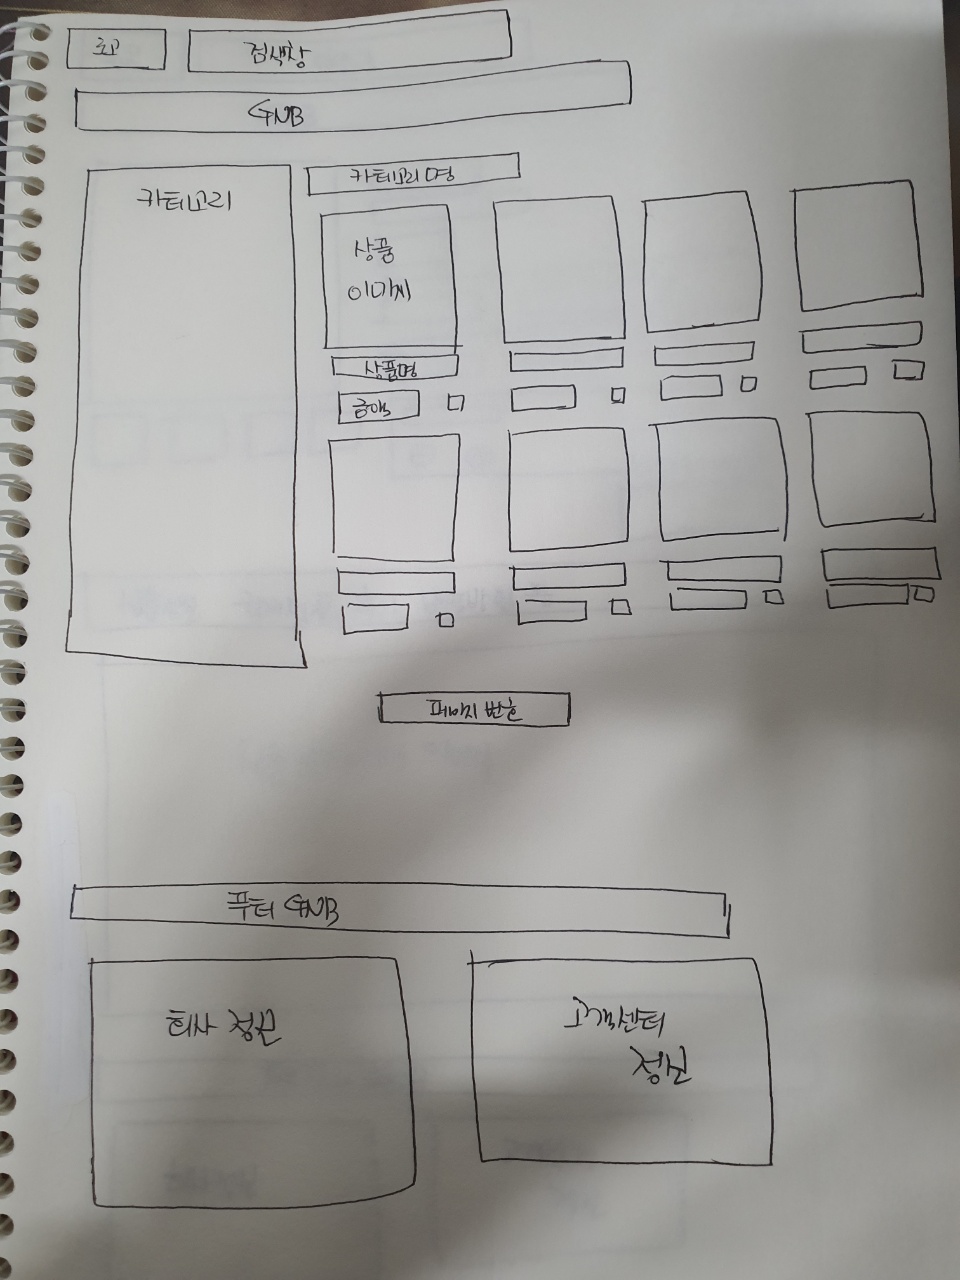 로고
검색창
GNB
카테고리
카테고리명
상품
이미지
상품명
금액
페이지 번호
푸터 GNB
회사 정보
고객센터
정보